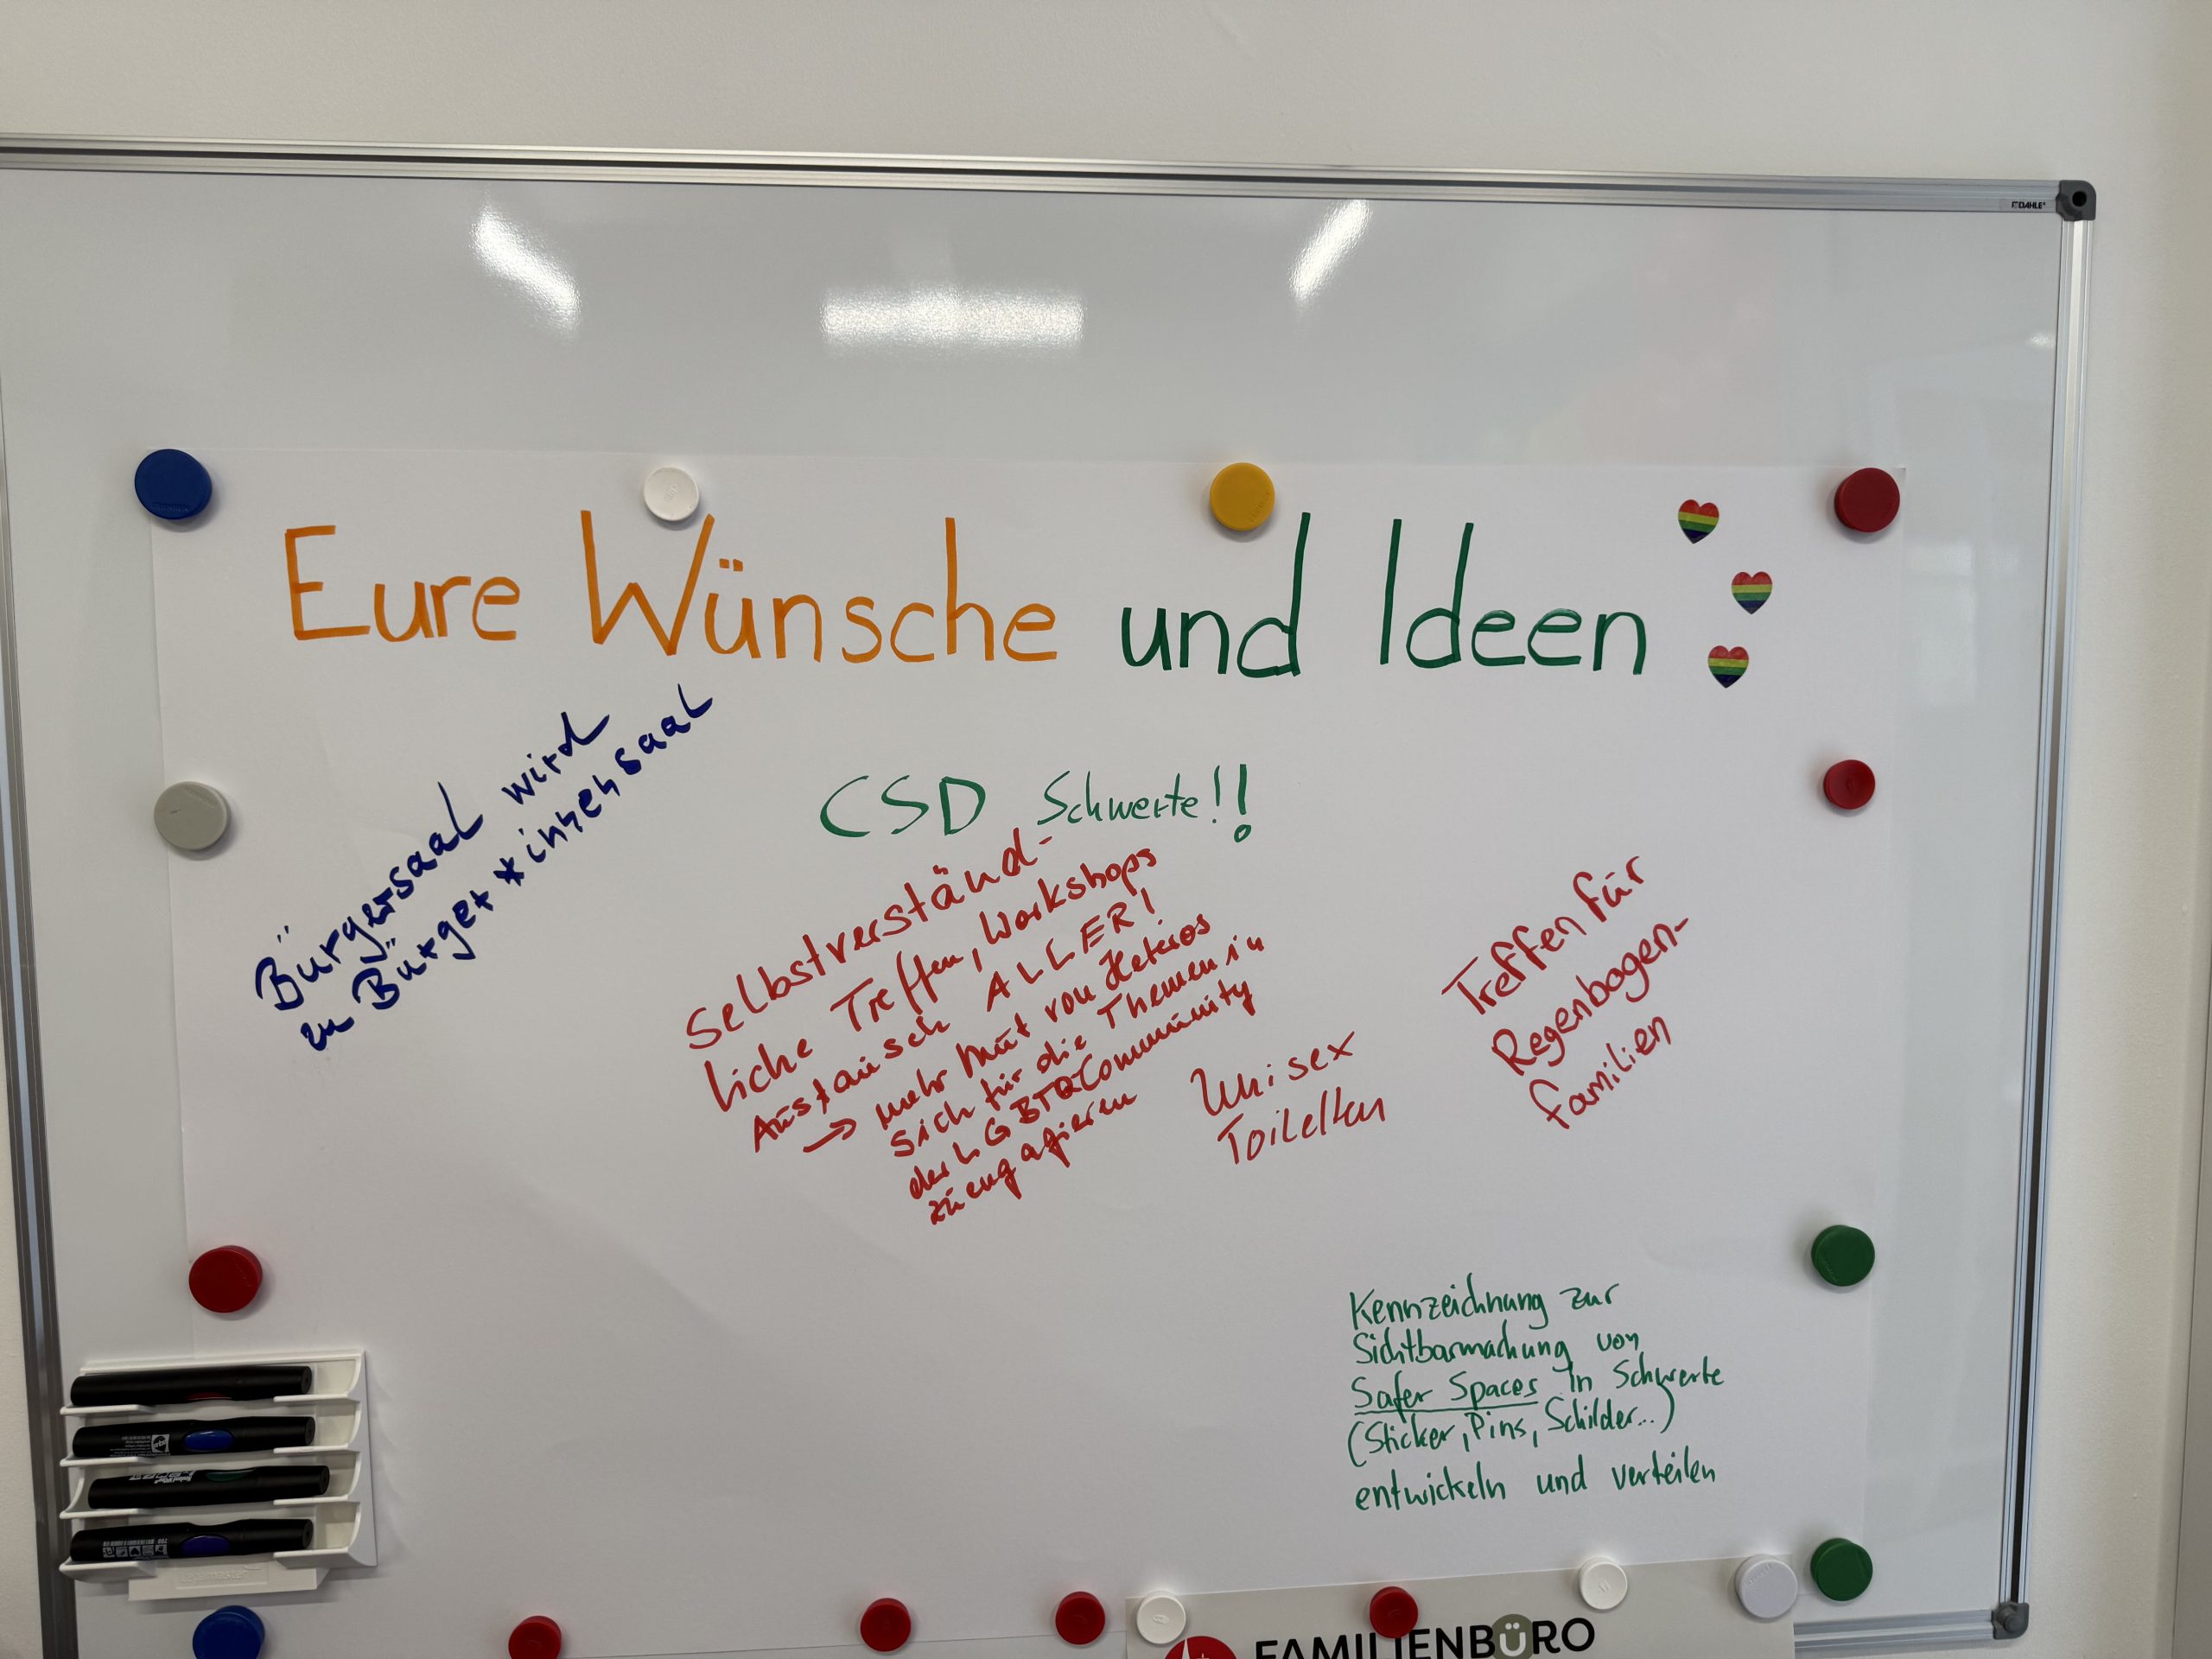 DAHLE
Eure Wünsche und Ideen
Bürgersaal wird
zu Bürger*innensaal
CSD Schwerte!!
Selbstverständ-
liche Treffen, Workshops
Austausch ALLER!
→ mehr Mut von Heteros
sich für die Themen in
der LGBTQ Community
zu engagieren
Unisex
Toiletten
Treffen für
Regenbogen-
familien
Kennzeichnung zur
Sichtbarmachung von
Safer Spaces in Schwerte
(Sticker, Pins, Schilder...)
entwickeln und verteilen
FAMILIENBÜRO